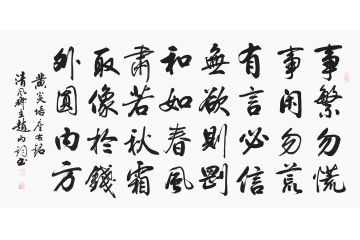 事繁勿慌
事闲勿荒
有言必信
無欲則剛
和如春風
肅若秋霜
取像於錢
外圓内方
黄炎培座右銘
清風鄉主趙内詢書